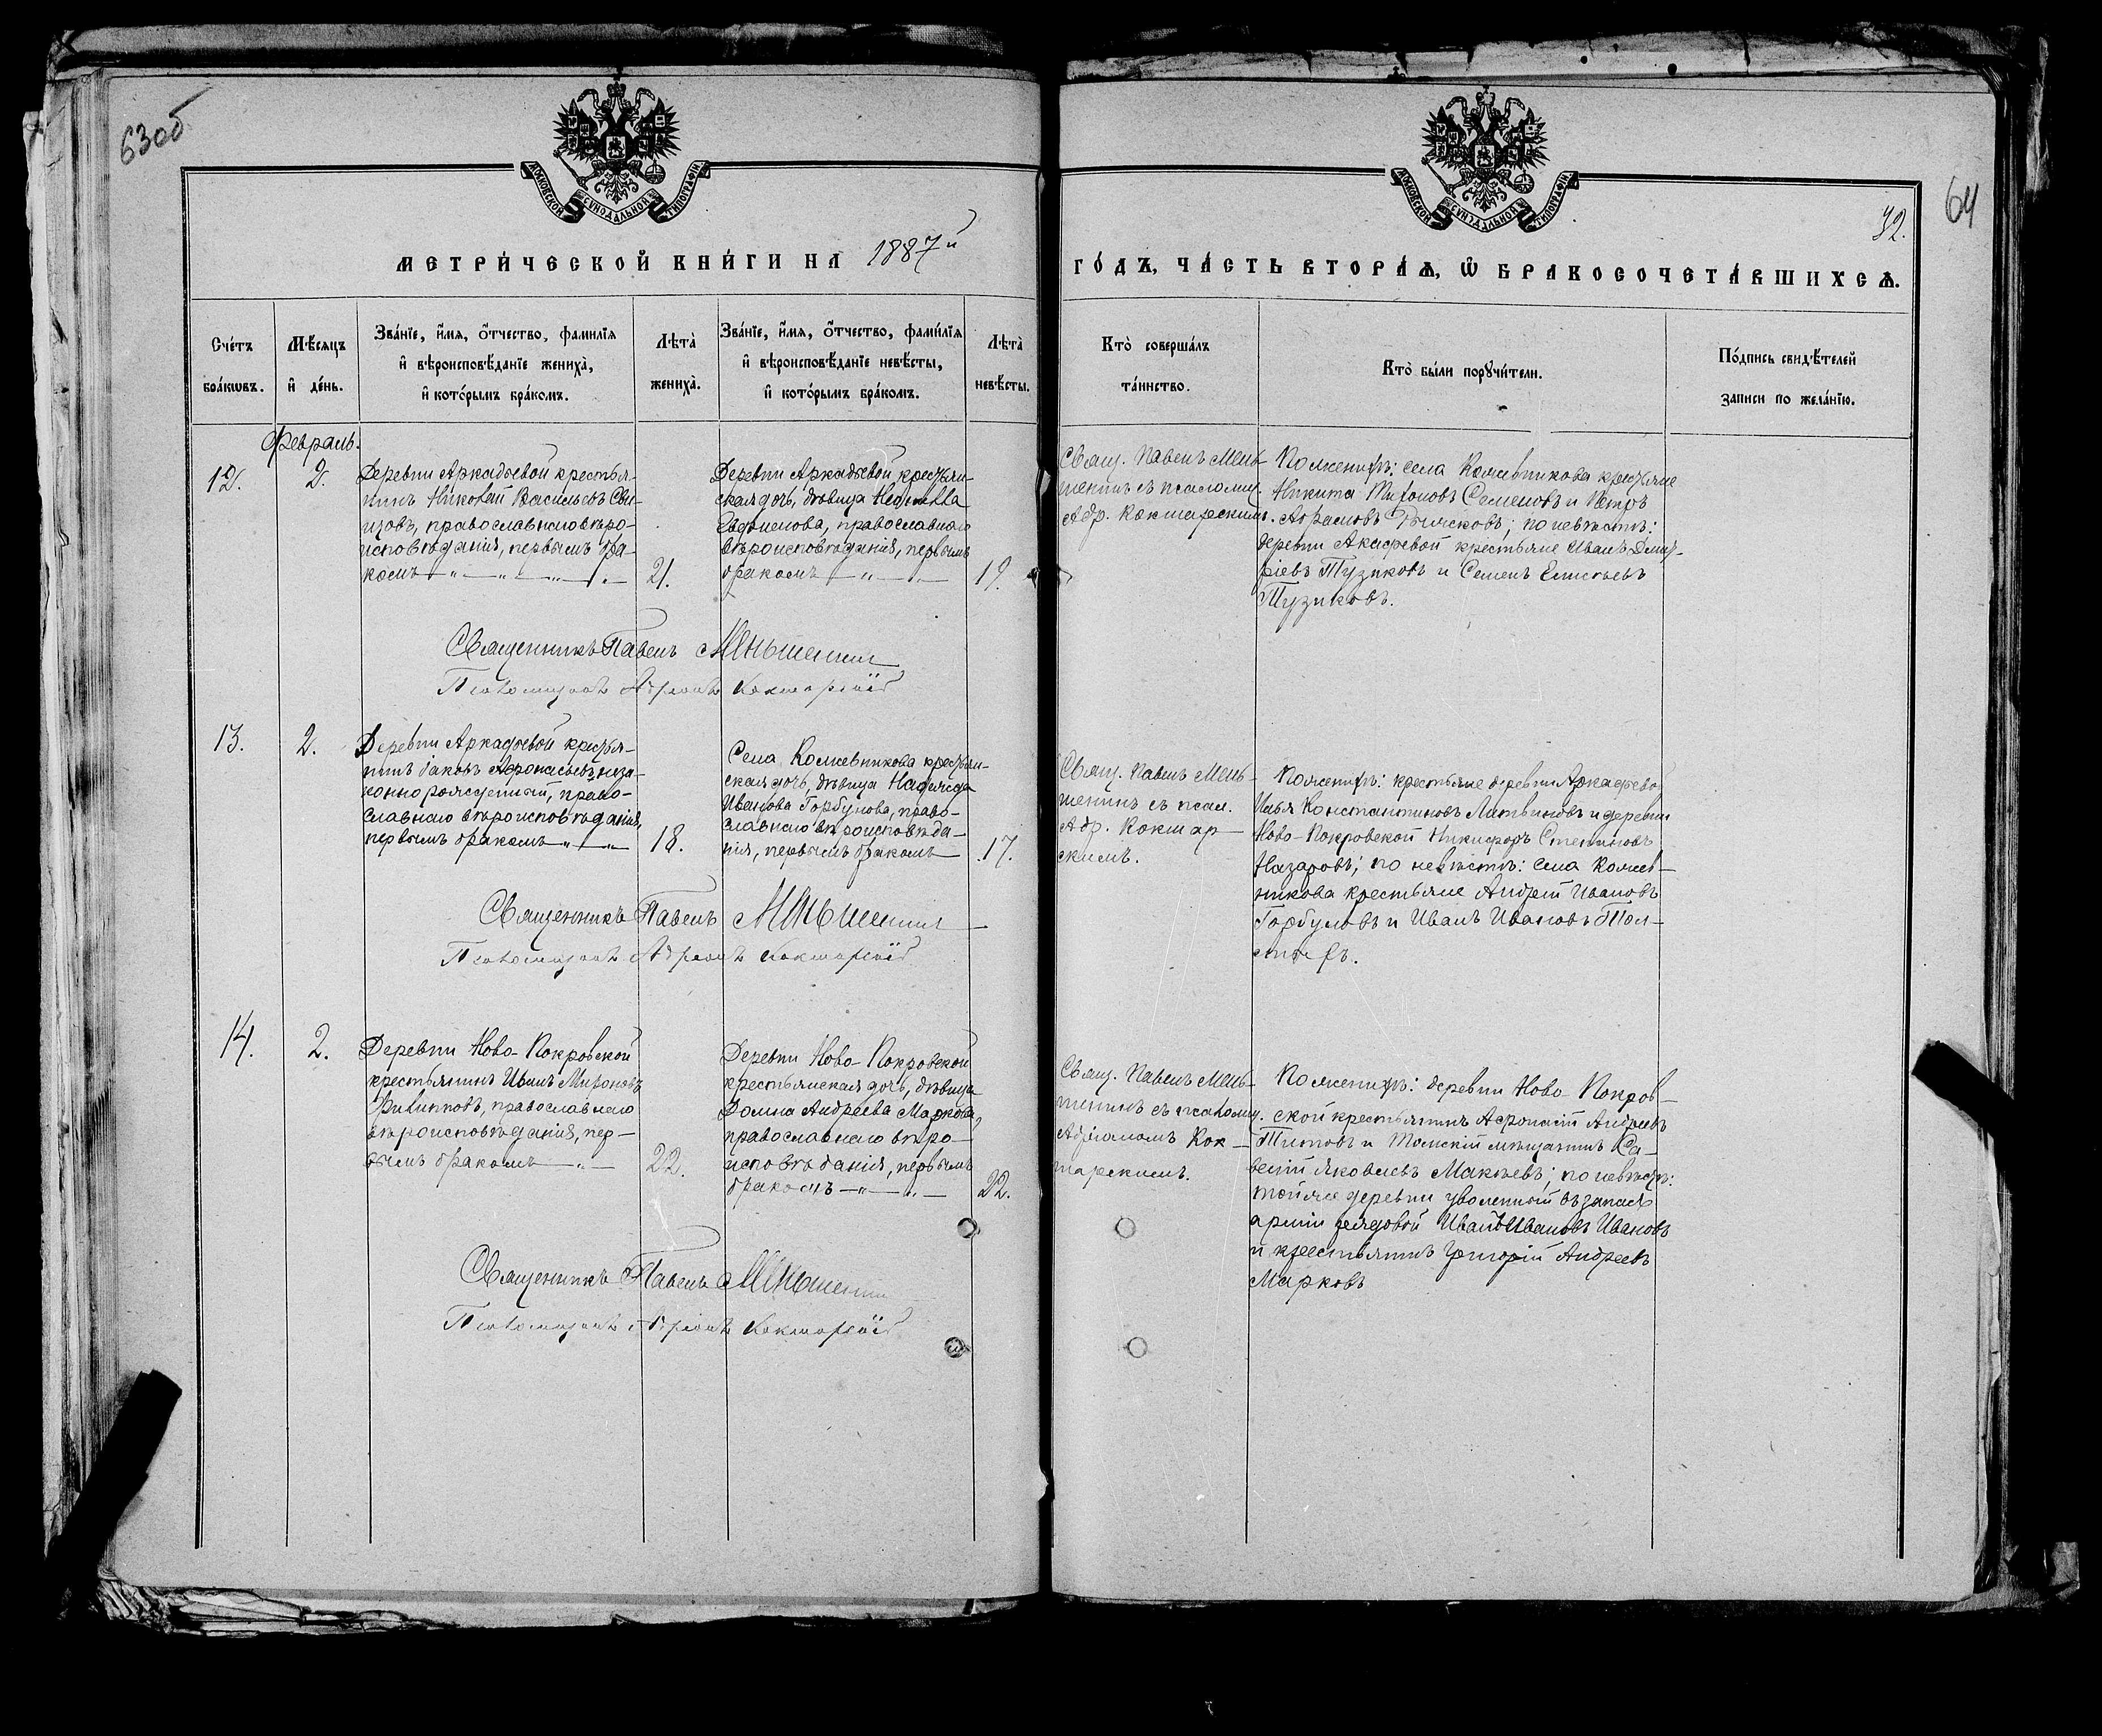 63об
64
32.
МОСКОВСКОЙ СѴНОДАЛЬНОЙ ТИПОГРАФІИ
МОСКОВСКОЙ СѴНОДАЛЬНОЙ ТИПОГРАФІИ
МЕТРИ́ЧЕСКОЙ КНИ́ГИ НА 1887й
ГО́ДЪ, ЧА́СТЬ ВТОРА́Ѧ, Ѽ БРАКОСОЧЕТА́ВШИХСѦ.
Сче́тъ
бра́кѡвъ.
Мѣ́сяцъ
и҆ де́нь.
Зва́нїе, и҆́мя, ѻ҆́тчество, фами́лїя
и҆ вѣроисповѣ́данїе жениха̀,
и҆ кото́рымъ бра́комъ.
Лѣта̀
жениха̀.
Зва́нїе, и҆́мя, ѻ҆́тчество, фами́лїя
и҆ вѣроисповѣ́данїе невѣ́сты,
и҆ кото́рымъ бра́комъ.
Лѣта̀
невѣ́сты.
Кто̀ соверша́лъ
та́инство.
Кто̀ бы́ли порꙋчи́тели.
По́дпись свидѣ́телей
записи по жела́нїю.
Февраль.
12.
2.
Деревни Аркадьевой крестья-
нинъ Николай Васильевъ Сви-
цовъ, православнаго вѣро-
исповѣданія, первымъ бра-
комъ
21.
Деревни Аркадьевой крестьян-
ская дочь, дѣвица
Евфимова, православнаго
вѣроисповѣданія, первымъ
бракомъ
19.
Свящ. Павелъ Мень-
шенинъ съ псаломщ.
Адр. Кокшарскимъ.
По женихѣ: села Кожевникова крестьяне
Никита Семеновъ и Петръ
Абрамовъ; по невѣстѣ:
деревни крестьяне Иванъ Димит-
ріевъ Тузиковъ и Семенъ Елисѣевъ
Тузиковъ.
Священникъ Павелъ Меньшенинъ
Псаломщикъ Адріанъ Кокшарскій
13.
2.
Деревни Аркадьевой крестья-
нинъ Іаковъ Афонасьевъ, неза-
конно рожденный, право-
славнаго вѣроисповѣданія,
первымъ бракомъ
18.
Села Кожевникова крестьян-
ская дочь, дѣвица Надежда
Иванова Горбунова, право-
славнаго вѣроисповѣда-
нія, первымъ бракомъ
17.
Свящ. Павелъ Мень-
шенинъ съ псал.
Адр. Кокшар-
скимъ.
По женихѣ: крестьяне деревни Аркадьевой
Илья Константиновъ Литвиновъ и деревни
Ново-Покровской Никифоръ Степановъ
Назаровъ; по невѣстѣ: села Кожев-
никова крестьяне Андрей Ивановъ
Горбуновъ и Иванъ Ивановъ Тол-
Священникъ Павелъ Меньшенинъ
Псаломщикъ Адріанъ Кокшарскій
14.
2.
Деревни Ново-Покровской
крестьянинъ Иванъ Мироновъ
Филипповъ, православнаго
вѣроисповѣданія, пер-
вымъ бракомъ
22.
Деревни Ново-Покровской
крестьянская дочь, дѣвица
Домна Андреева Маркова,
православнаго вѣро-
исповѣданія, первымъ
бракомъ
22.
Свящ. Павелъ Мень-
шенинъ съ псаломщ.
Адріаномъ Кок-
шарскимъ.
По женихѣ: деревни Ново-Покров-
ской крестьянинъ Афонасій Андреевъ
Титовъ и Томскій мѣщанинъ Са-
велій Яковлевъ Макѣевъ; по невѣстѣ:
той же деревни уволенный въ запасъ
арміи рядовой Иванъ Ивановъ Ивановъ
и крестьянинъ Григорій Андреевъ
Марковъ
Священникъ Павелъ Меньшенинъ
Псаломщикъ Адріанъ Кокшарскій